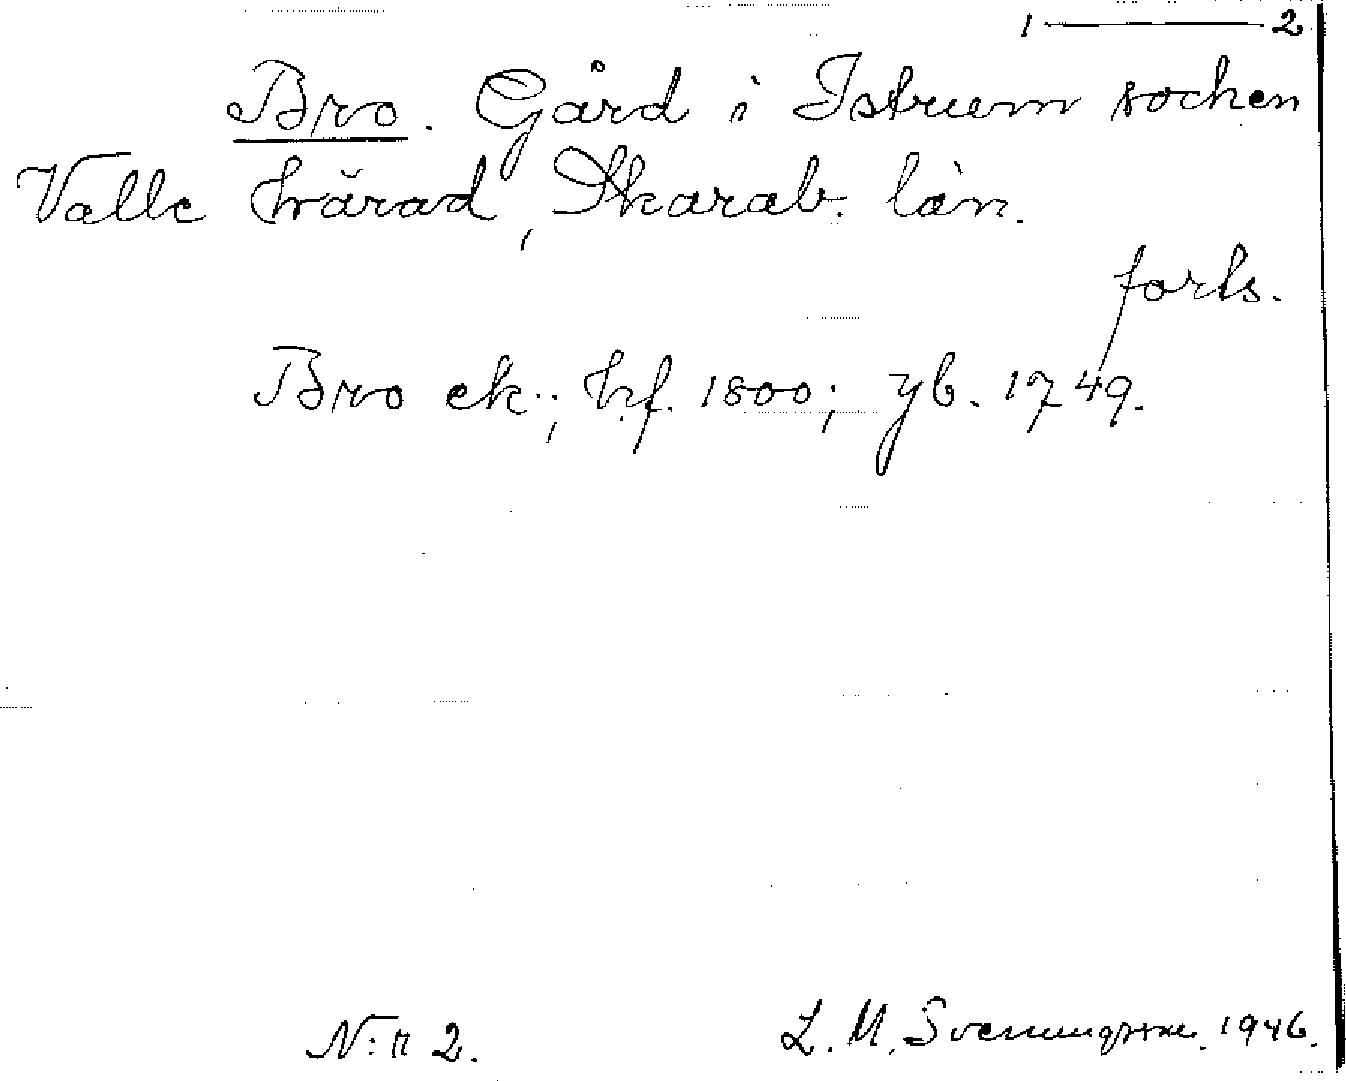 1 — 2
Bro. Gård i Istrum socken
Valle härad, Skarab. län.
forts.
Bro ek.; hf. 1800; yb. 1749.
N:r 2. L. M. Svenungsson. 1946.